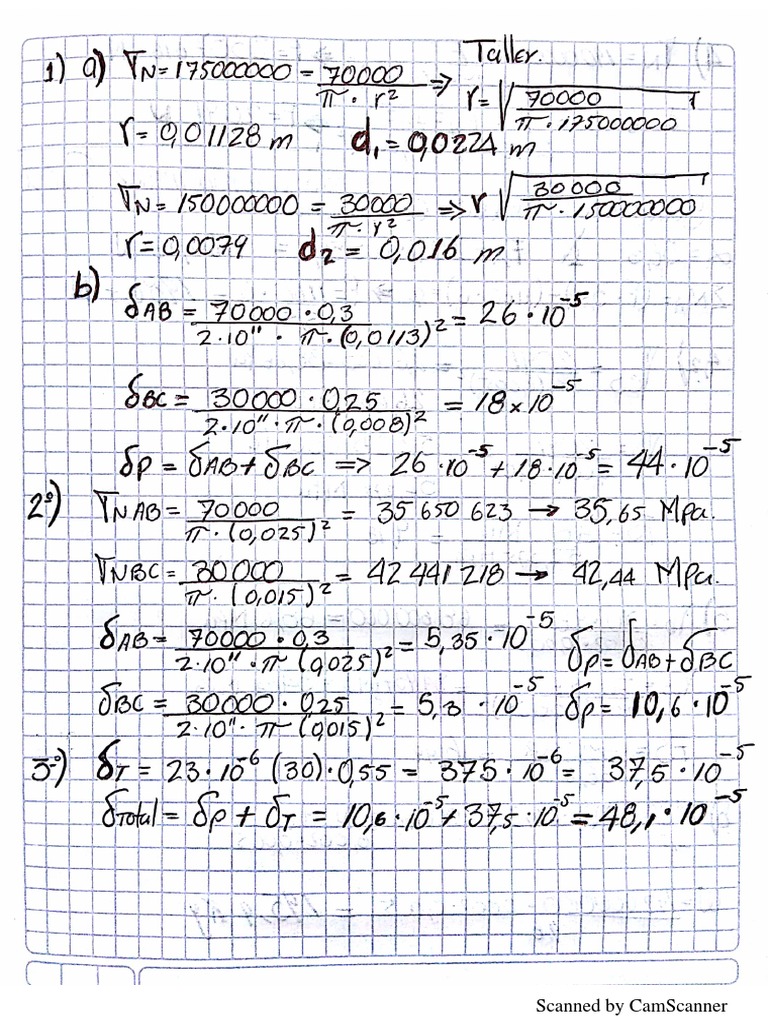 Taller.
1) a) σN = 175000000 = 70000 / π · r² ⇒ r = √(70000 / π · 175000000)
r = 0,01128 m d₁ = 0,0224 m
σN = 150000000 = 30000 / π · r² ⇒ r √(30000 / π · 150000000)
r = 0,0079 d₂ = 0,016 m
b) δAB = 70000 · 0,3 / 2·10¹¹ · π · (0,0113)² = 26 · 10⁻⁵
δBC = 30000 · 0,25 / 2·10¹¹ · π · (0,008)² = 18 × 10⁻⁵
δP = δAB + δBC ⇒ 26 · 10⁻⁵ + 18 · 10⁻⁵ = 44 · 10⁻⁵
2º) σN AB = 70000 / π · (0,025)² = 35 650 623 → 35,65 Mpa.
σN BC = 30000 / π · (0,015)² = 42 441 218 → 42,44 Mpa.
δAB = 70000 · 0,3 / 2·10¹¹ · π (0,025)² = 5,35 · 10⁻⁵ δP = δAB + δBC
δBC = 30000 · 0,25 / 2·10¹¹ · π (0,015)² = 5,3 · 10⁻⁵ δP = 10,6 · 10⁻⁵
3º) δT = 23 · 10⁻⁶ (30) · 0,55 = 375 · 10⁻⁶ = 37,5 · 10⁻⁵
δTotal = δP + δT = 10,6 · 10⁻⁵ + 37,5 · 10⁻⁵ = 48,1 · 10⁻⁵
Scanned by CamScanner